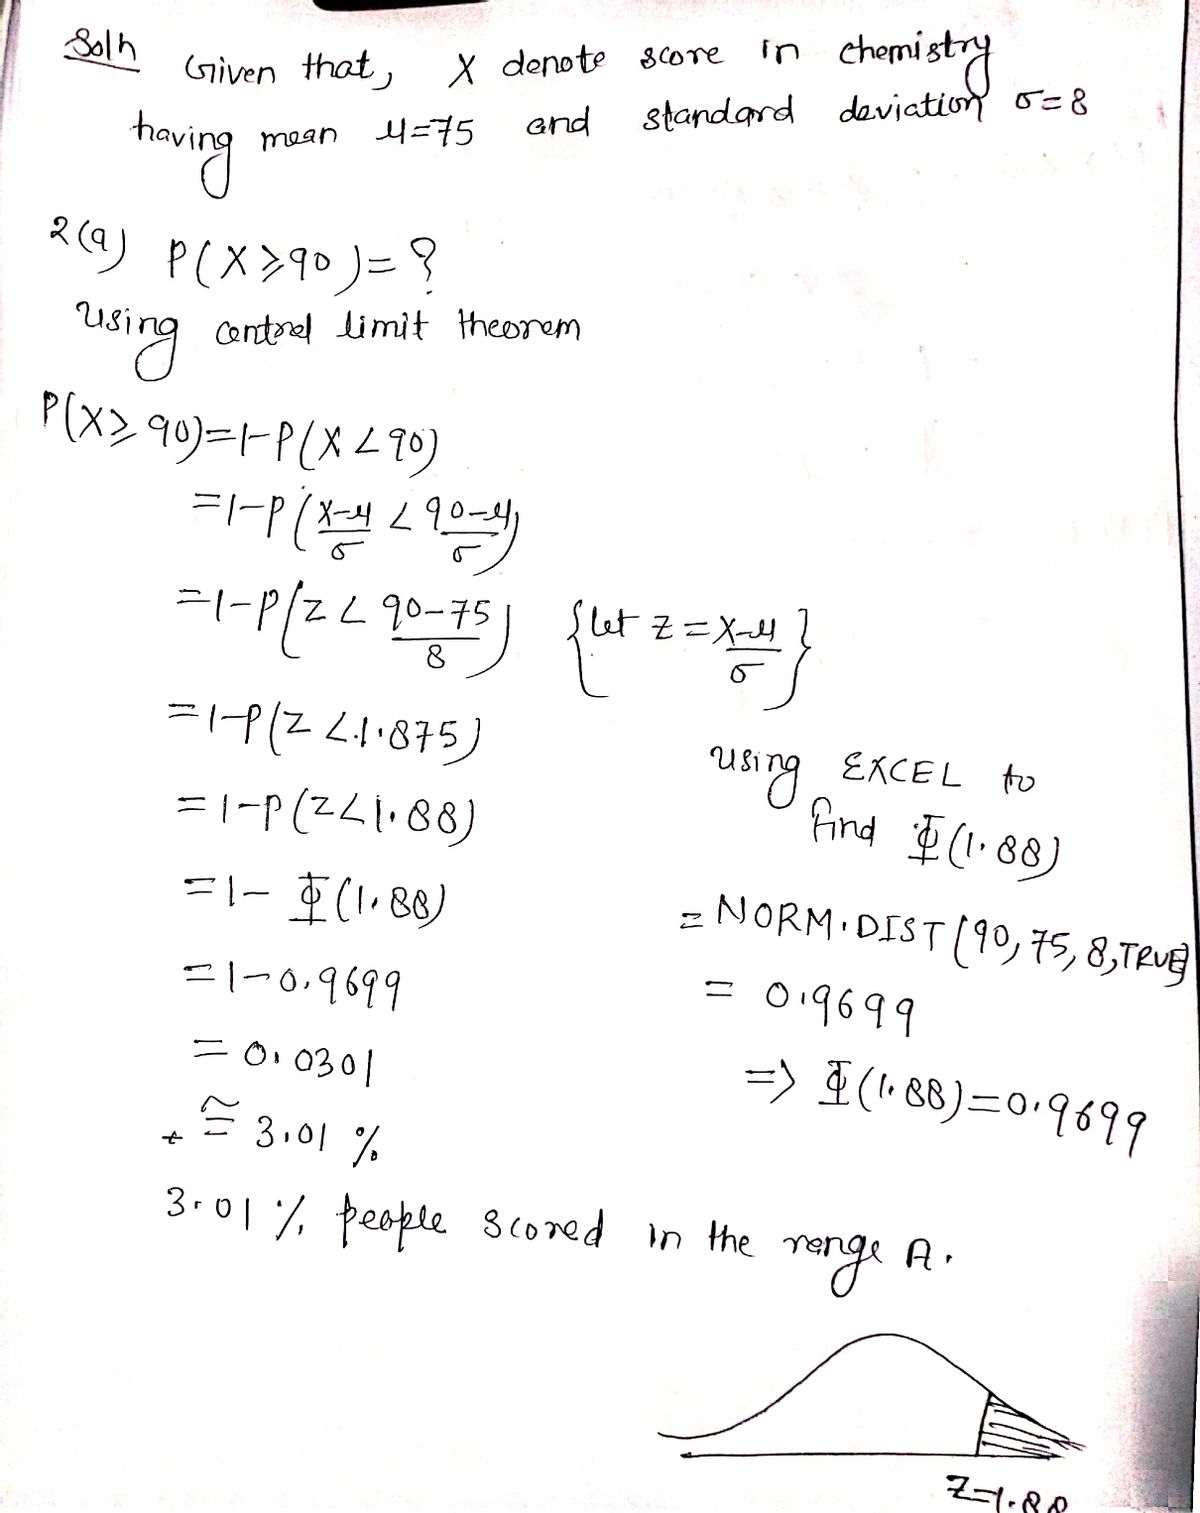 Soln Given that, X denote score in chemistry
having mean μ=75 and standard deviation σ=8
2(a) P(X≥90)=?
Using central limit theorem
P(X≥90)=1-P(X<90)
=1-P(X-μ/σ < 90-μ/σ)
=1-P(Z < 90-75/8) {let Z = X-μ/σ}
=1-P(Z<1.875)
=1-P(Z<1.88)
=1-Φ(1.88)
=1-0.9699
=0.0301
≅ 3.01 %
using EXCEL to
find Φ(1.88)
= NORM.DIST(90,75,8,TRUE)
= 0.9699
=> Φ(1.88)=0.9699
3.01 % people scored in the range A.
Z=1.88